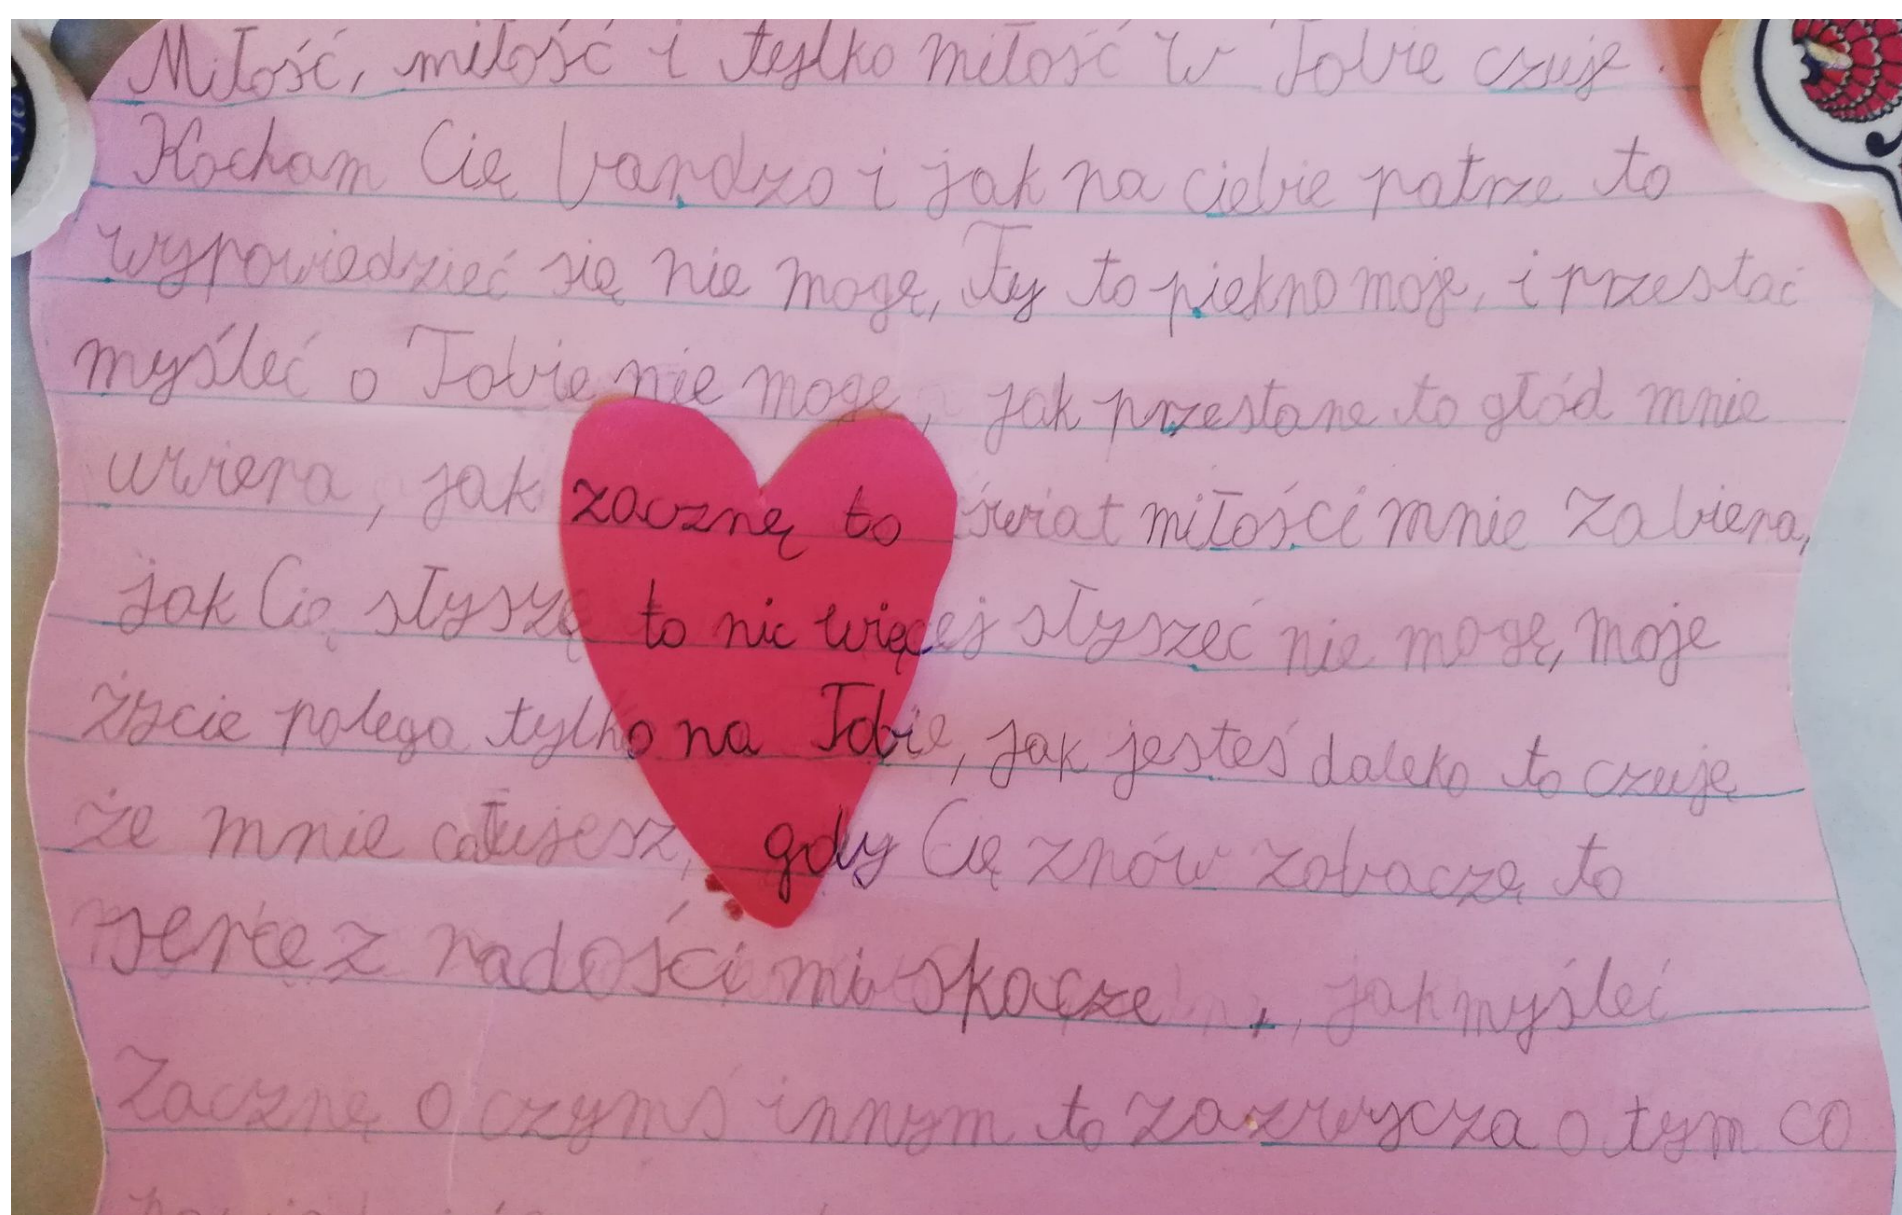 Miłość, miłość i tylko miłość w Tobie czuję.
Kocham Cię bardzo i jak na ciebie patrze to
wypowiedzieć się nie mogę, Ty to piękno moje, i przestać
myśleć o Tobie nie mogę, jak przestane to głód mnie
uwiera, jak zacznę to świat miłości mnie zabiera,
jak Cię słyszę to nic więcej słyszeć nie mogę, moje
życie polega tylko na Tobie, jak jesteś daleko to czuję
że mnie całujesz, gdy Cię znów zobaczę to
serce z radości mi skacze, jak myśleć
Zacznę o czymś innym to zazwycza o tym co